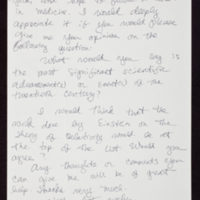 in medicine. I would deeply
appreciate it if you would please
give me your opinion on the
following question:
What would you say is
the most significant scientific
advancement(s) or event(s) of the
twentieth century?
I would think that the
work done by Einstein on the
theory of Relativity would be at
the top of the list. Would you
agree?
Any thoughts or comments you
can give me will be of great
help. Thanks very much.